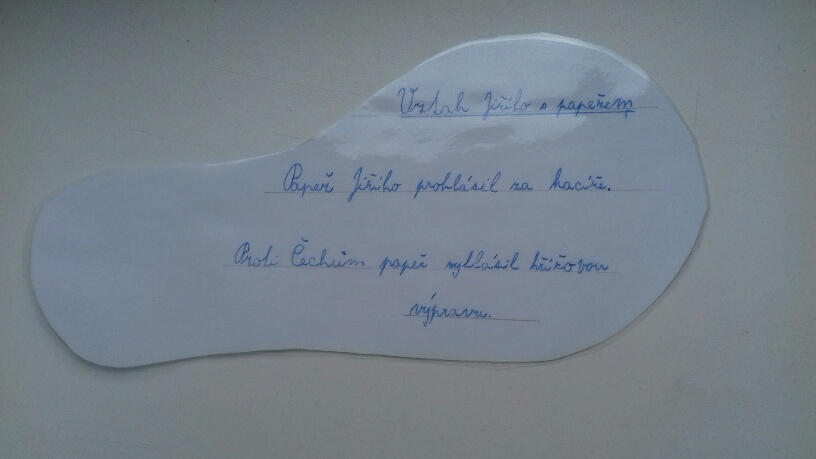 Vztah Jiřího s papežem
Papež Jiřího prohlásil za kacíře.
Proti Čechům papež vyhlásil křížovou
výpravu.